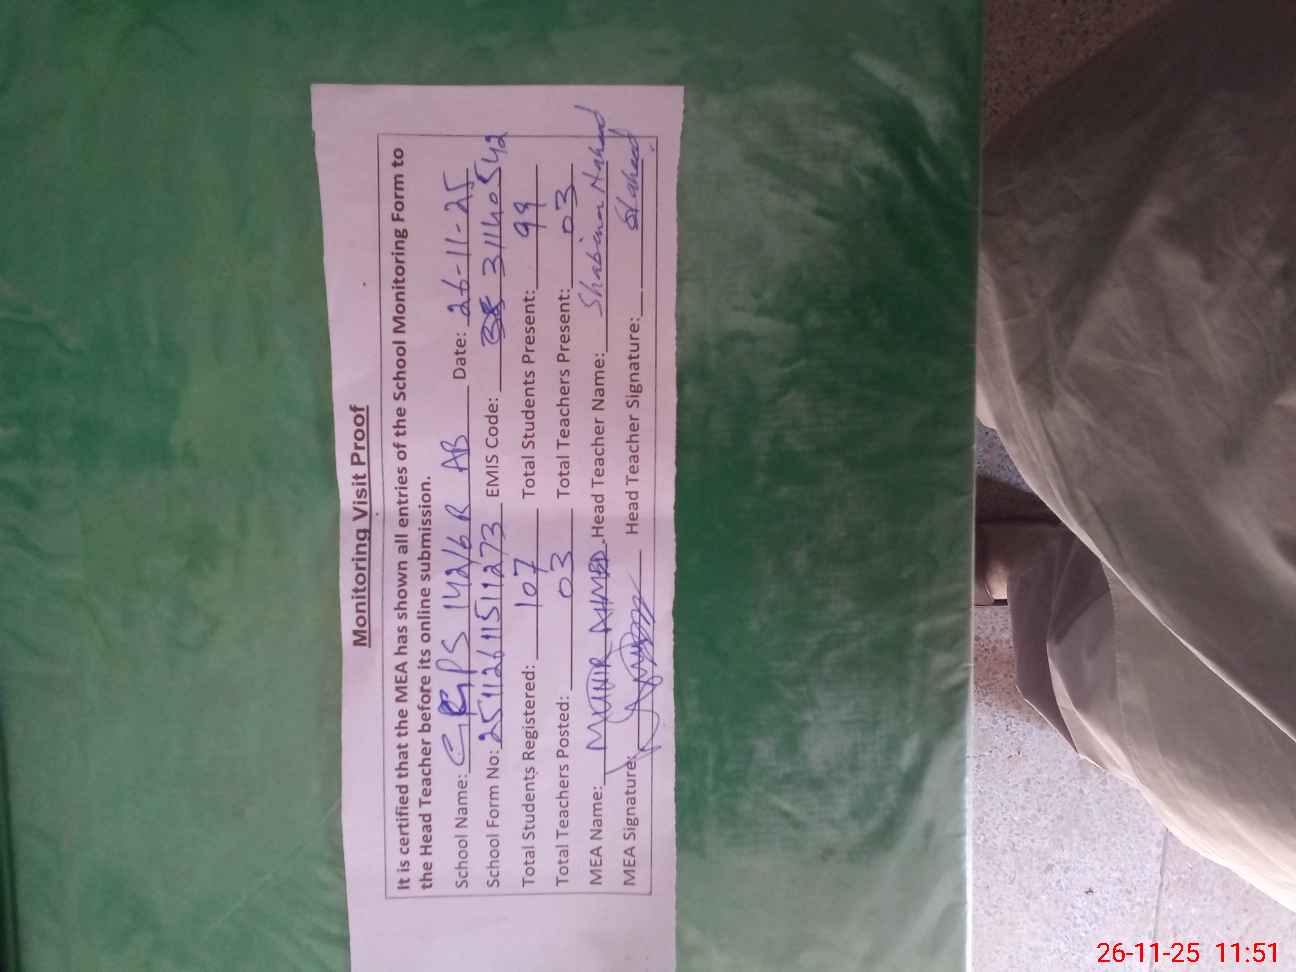 Monitoring Visit Proof
It is certified that the MEA has shown all entries of the School Monitoring Form to
the Head Teacher before its online submission.
School Name: GGPS 142/6R AB Date: 26-11-25
School Form No: 25112611511273 EMIS Code: 31140542
Total Students Registered: 107 Total Students Present: 99
Total Teachers Posted: 03 Total Teachers Present: 03
MEA Name: MUNIR AHMED Head Teacher Name: Shabina Naheed
MEA Signature: Head Teacher Signature:
26-11-25 11:51